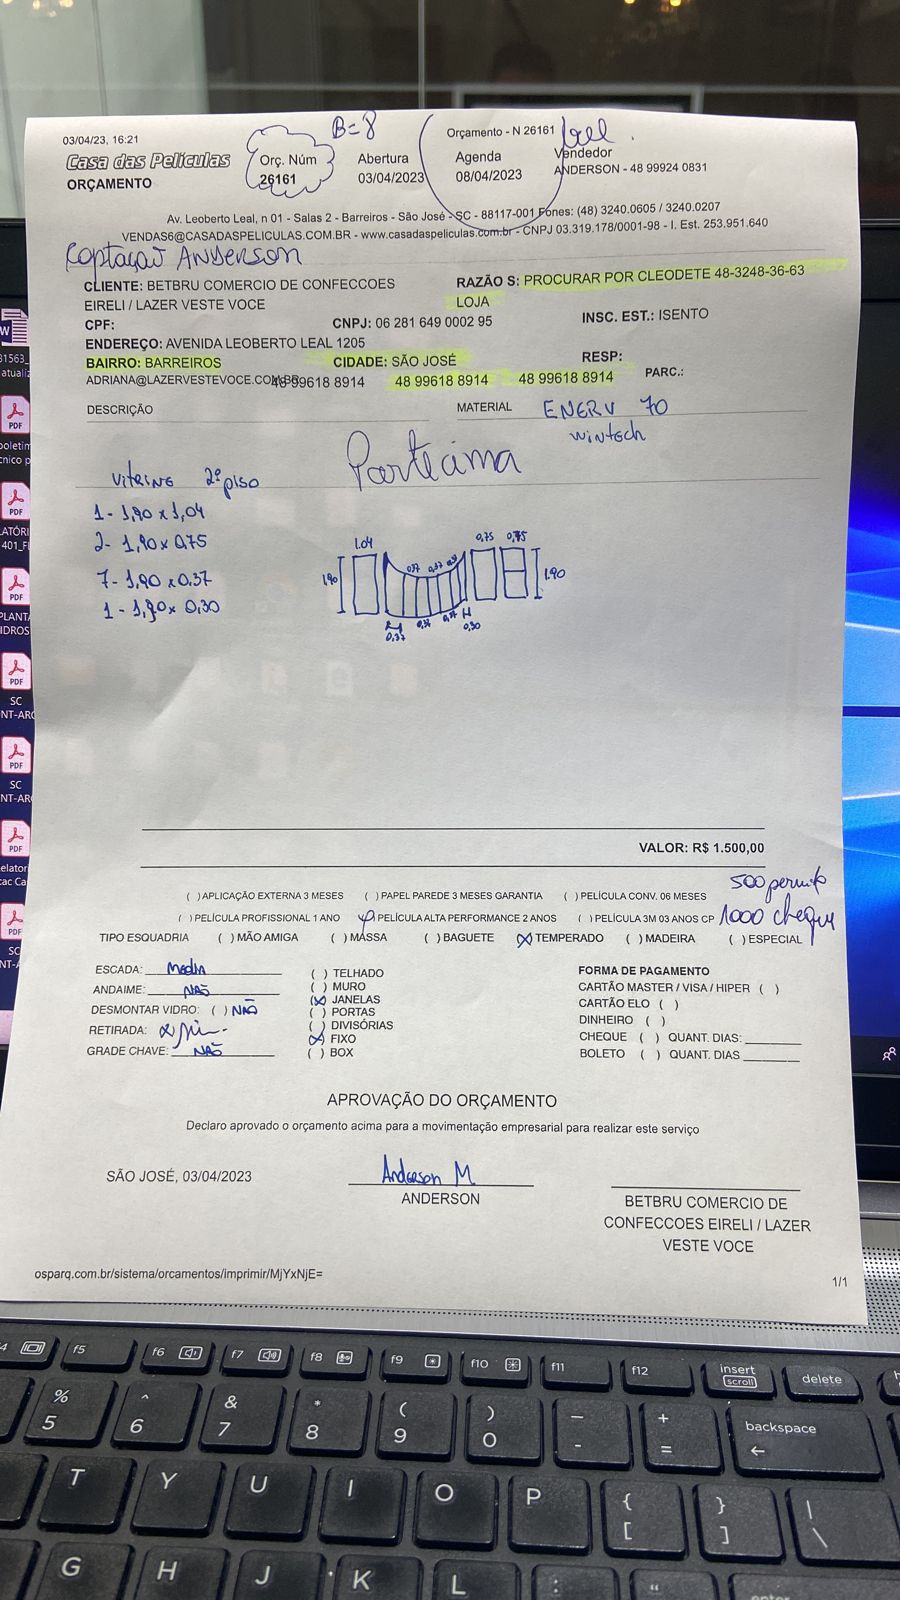 B=8
03/04/23, 16:21
Orçamento - N 26161
Casa das Películas
ORÇAMENTO
Orç. Núm
26161
Abertura
03/04/2023
Agenda
08/04/2023
Vendedor
ANDERSON - 48 99924 0831
Av. Leoberto Leal, n 01 - Salas 2 - Barreiros - São José - SC - 88117-001 Fones: (48) 3240.0605 / 3240.0207
VENDAS6@CASADASPELICULAS.COM.BR - www.casadaspeliculas.com.br - CNPJ 03.319.178/0001-98 - I. Est. 253.951.640
Captação Anderson
CLIENTE: BETBRU COMERCIO DE CONFECCOES
EIRELI / LAZER VESTE VOCE
RAZÃO S: PROCURAR POR CLEODETE 48-3248-36-63
LOJA
CPF:
CNPJ: 06 281 649 0002 95
INSC. EST.: ISENTO
ENDEREÇO: AVENIDA LEOBERTO LEAL 1205
BAIRRO: BARREIROS
CIDADE: SÃO JOSÉ
RESP:
ADRIANA@LAZERVESTEVOCE.COM.BR
48 99618 8914
48 99618 8914
48 99618 8914
PARC.:
DESCRIÇÃO
MATERIAL ENERV 70
wintech
Parte cima
Vitrine 2º piso
1- 1,90 x 1,04
2- 1,90 x 0,75
7- 1,90 x 0,37
1- 1,90 x 0,30
1.04
0,75 0,75
1.90
0,37 0,37
1.90
0,37
0,37
0,30
VALOR: R$ 1.500,00
500 permuta
( ) APLICAÇÃO EXTERNA 3 MESES ( ) PAPEL PAREDE 3 MESES GARANTIA ( ) PELÍCULA CONV. 06 MESES
( ) PELÍCULA PROFISSIONAL 1 ANO ( ) PELÍCULA ALTA PERFORMANCE 2 ANOS ( ) PELÍCULA 3M 03 ANOS CP 1000 cheque
TIPO ESQUADRIA ( ) MÃO AMIGA ( ) MASSA ( ) BAGUETE (X) TEMPERADO ( ) MADEIRA ( ) ESPECIAL
ESCADA: Media
ANDAIME: NÃO
DESMONTAR VIDRO: ( ) NÃO
RETIRADA:
GRADE CHAVE: NÃO
( ) TELHADO
( ) MURO
(X) JANELAS
( ) PORTAS
( ) DIVISÓRIAS
(X) FIXO
( ) BOX
FORMA DE PAGAMENTO
CARTÃO MASTER / VISA / HIPER ( )
CARTÃO ELO ( )
DINHEIRO ( )
CHEQUE ( ) QUANT. DIAS:
BOLETO ( ) QUANT. DIAS
APROVAÇÃO DO ORÇAMENTO
Declaro aprovado o orçamento acima para a movimentação empresarial para realizar este serviço
SÃO JOSÉ, 03/04/2023
Anderson M
ANDERSON
BETBRU COMERCIO DE
CONFECCOES EIRELI / LAZER
VESTE VOCE
osparq.com.br/sistema/orcamentos/imprimir/MjYxNjE=
1/1
f5 f6 f7 f8 f9 f10 f11 f12 insert scroll delete
% 5 ^ 6 & 7 * 8 ( 9 ) 0 - - + = backspace
T Y U I O P { [ } ] | \
G H J K L : ; "